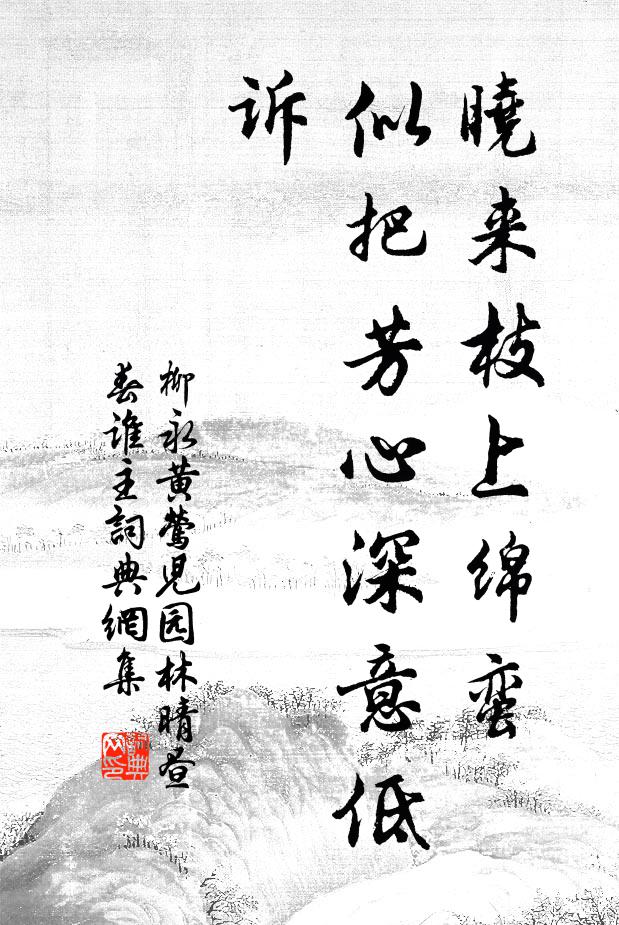 曉来枝上绵蛮
似把芳心深意低
诉
柳永黄莺児园林晴昼
春谁主詞典網集